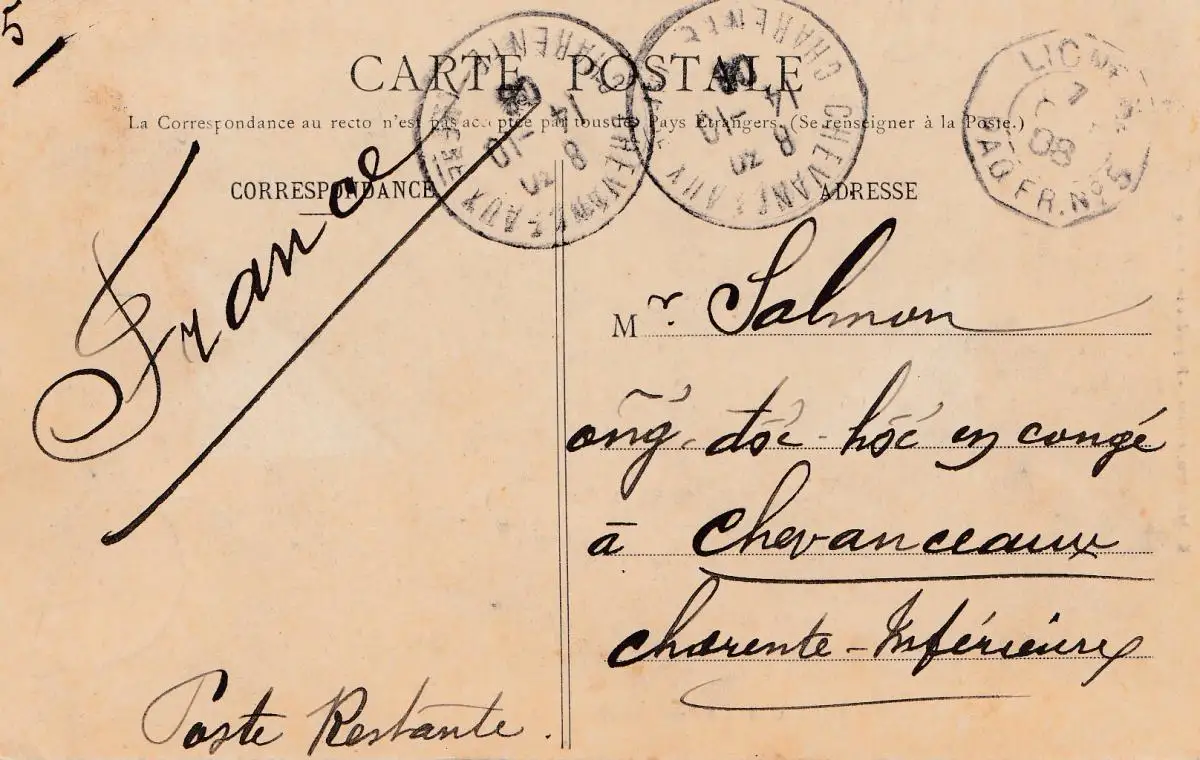 5
CARTE POSTALE
La Correspondance au recto n'est pas acceptée par tous les Pays Étrangers. (Se renseigner à la Poste.)
CORRESPONDANCE
ADRESSE
France
Mr. Salmon
đốc-hóc en congé
à Chevanceaux
Charente-Inférieure
Poste Restante.
CHEVANCEAUX
CHARENTE INFRE
8
14
-10
08
CHEVANCEAUX
CHARENTE
8
14
-10
08
LIGNE
PAQ. FR. No 5
7
08